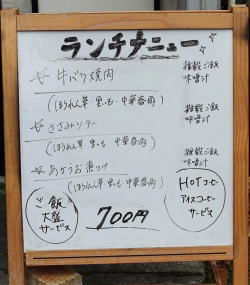 ランチメニュー
☆ 牛バラ焼肉 雑穀ご飯 味噌汁
(ほうれん草・里いも・中華春雨)
☆ ささみソテー 雑穀ご飯 味噌汁
(ほうれん草・里いも・中華春雨)
☆ あかうお煮つけ 雑穀ご飯 味噌汁
(ほうれん草・里いも・中華春雨)
ご飯
大盛
サービス
700円
HOTコーヒー
アイスコーヒー
サービス